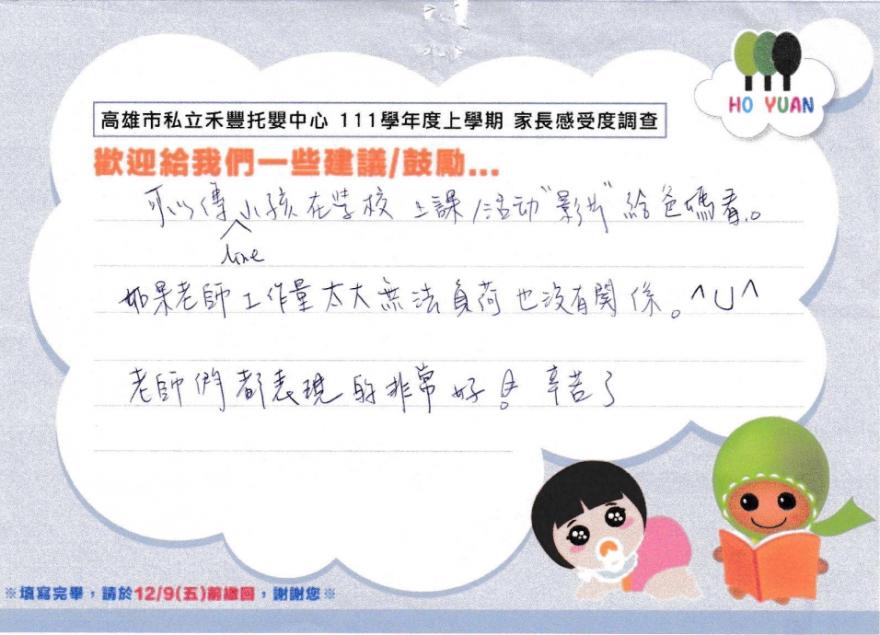 HO YUAN
高雄市私立禾豐托嬰中心 111學年度上學期 家長感受度調查
歡迎給我們一些建議/鼓勵...
可以傳小孩在學校上課/活动"影片"給爸媽看。
line
如果老師工作量太大無法負荷也沒有關係。^∪^
老師們都表現的非常好! 辛苦了
※填寫完畢,請於12/9(五)前繳回,謝謝您※